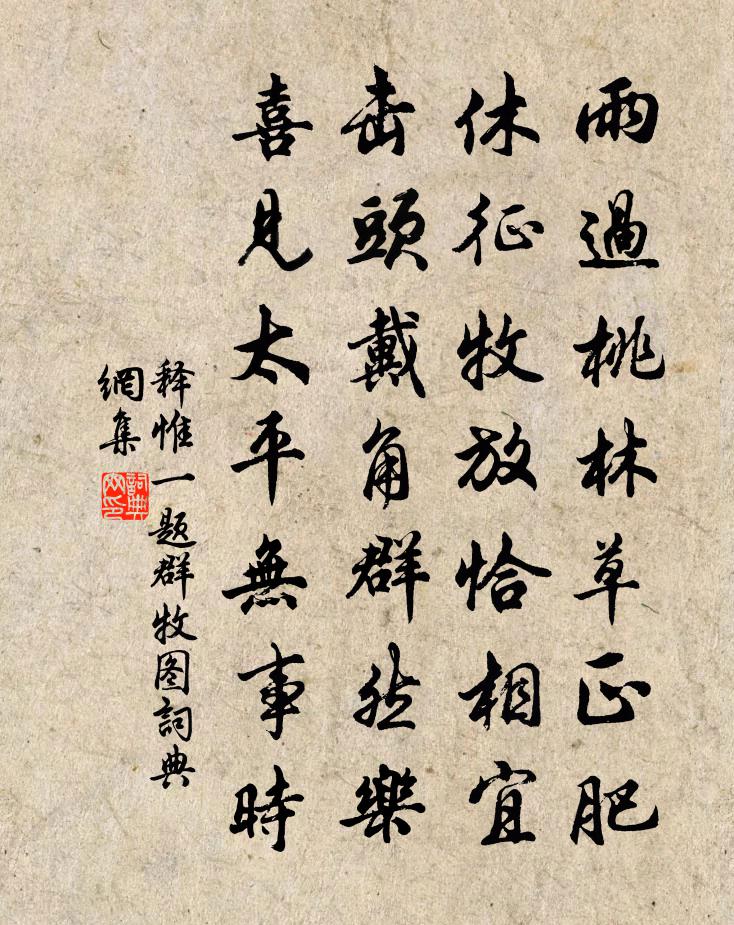 雨過桃林草正肥
休征牧放恰相宜
出頭戴角群然樂
喜見太平無事時
释惟一题群牧图詞典
網集
詞典
网印